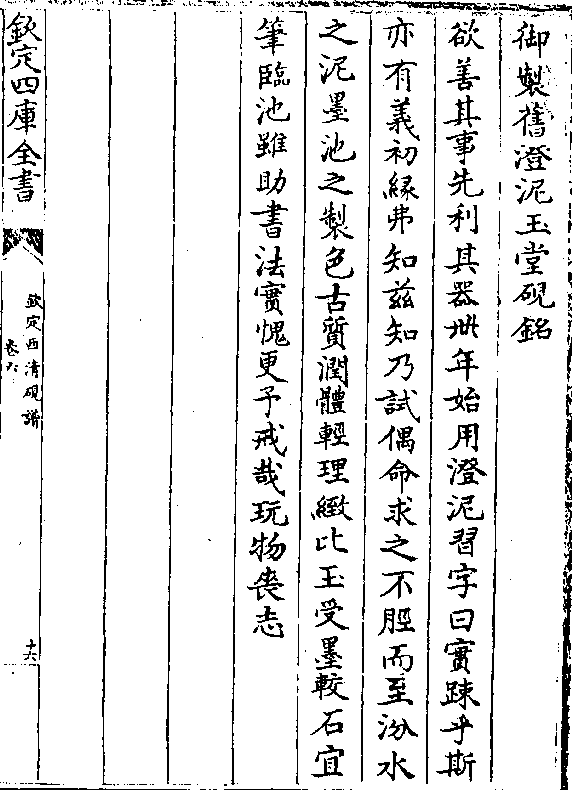 御製舊澄泥玉堂硯銘
欲善其事先利其器卅年始用澄泥習字曰實踈乎斯
亦有義初緣弗知茲知乃試偶命求之不脛而至汾水
之泥墨池之製色古質潤體輕理緻比玉受墨較石宜
筆臨池雖助書法實愧更予戒哉玩物喪志
欽定四庫全書
欽定西清硯譜
卷六
十六